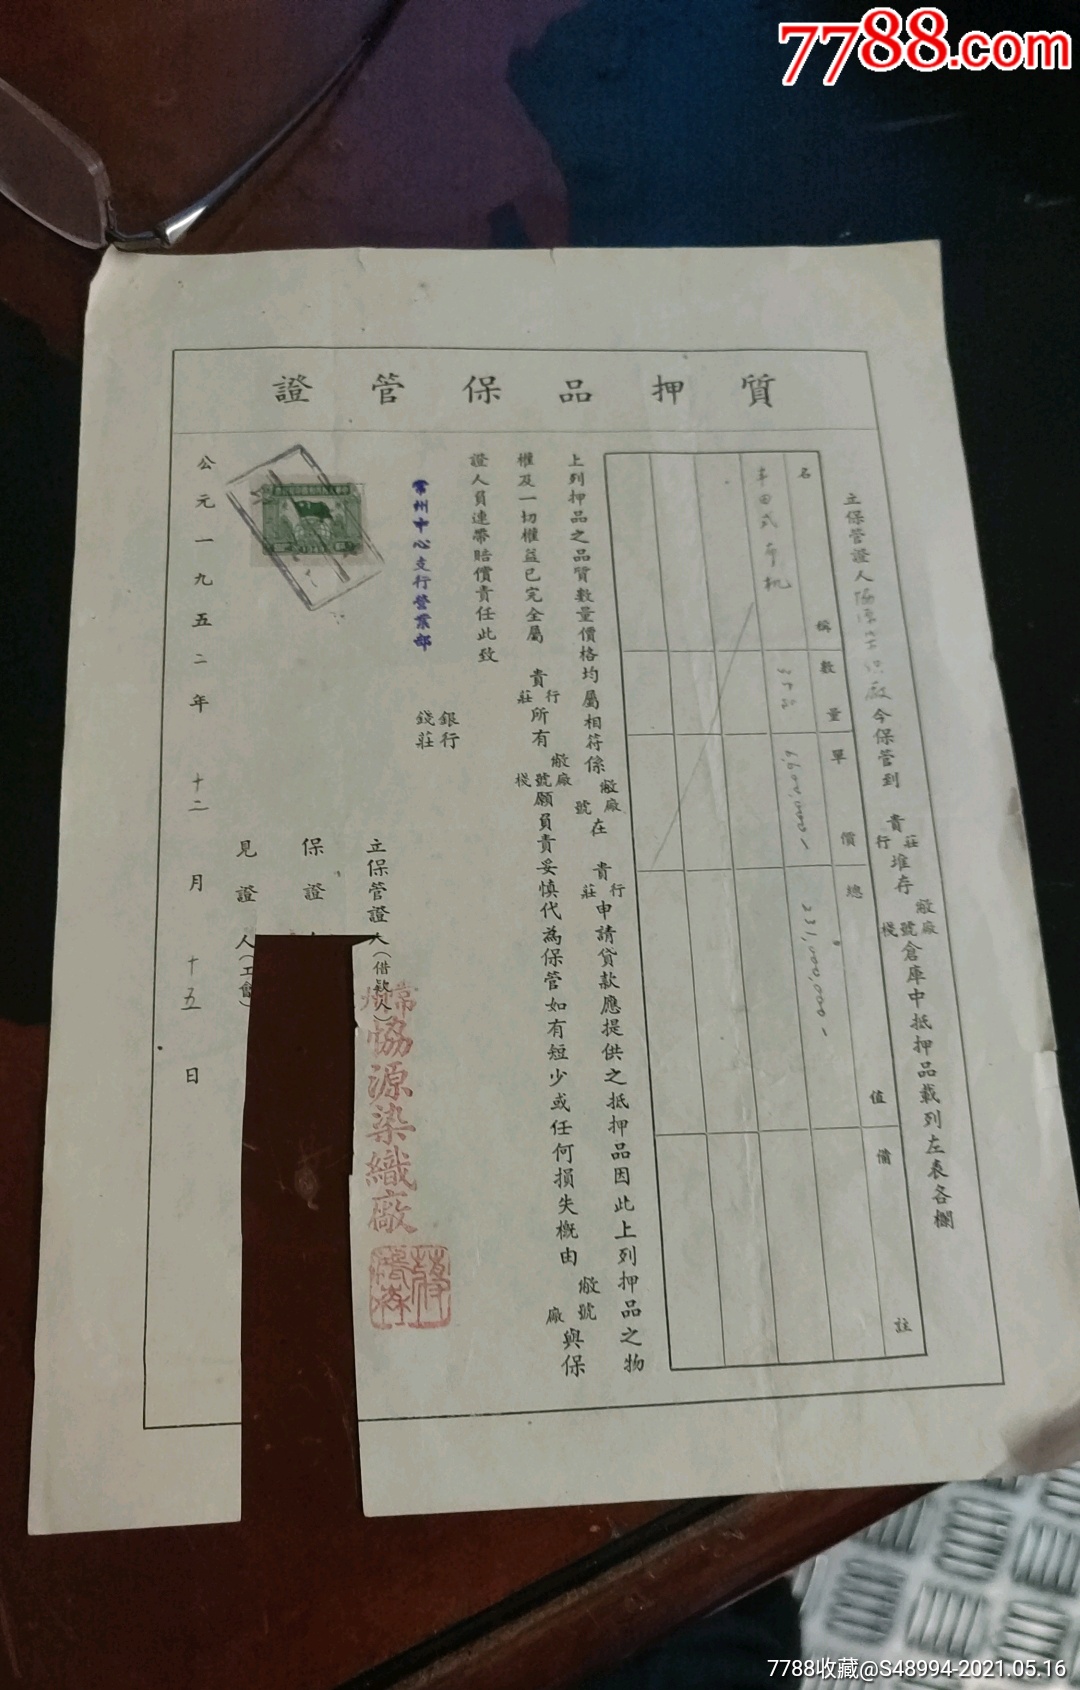 7788.com
質押品保管證
立保管證人協源染織廠今保管到貴莊行堆存敝廠號棧倉庫中抵押品載列左表各欄
名稱 數量 單價 總值 備註
丰田式布机
上列押品之品質數量價格均屬相符係敝廠號在貴行莊申請貸款應提供之抵押品因此上列押品之物
權及一切權益已完全屬貴行莊所有敝廠號棧願負責妥慎代為保管如有短少或任何損失概由敝號廠與保
證人員連帶賠償責任此致
常州中心支行營業部 銀行錢莊
立保管證人(借款人)
常州協源染織廠
保證
見證人(工會)
公元一九五二年十二月十五日
7788收藏@S48994-2021.05.16